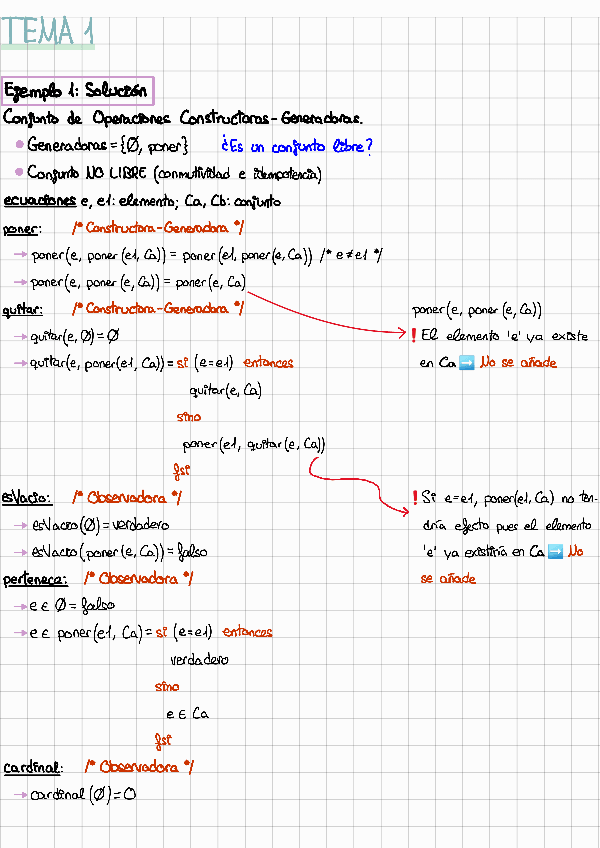 TEMA 1
Ejemplo 1: Solución
Conjunto de Operaciones Constructoras-Generadoras.
• Generadoras = {Ø, poner} ¿Es un conjunto libre?
• Conjunto NO LIBRE (conmutividad e idempotencia)
ecuaciones e, e1: elemento; Ca, Cb: conjunto
poner: /* Constructora-Generadora */
→ poner(e, poner (e1, Ca)) = poner(e1, poner(e, Ca)) /* e≠e1 */
→ poner(e, poner (e, Ca)) = poner(e, Ca)
quitar: /* Constructora-Generadora */
poner(e, poner (e, Ca))
→ quitar(e, Ø) = Ø
! El elemento 'e' ya existe
→ quitar(e, poner(e1, Ca)) = si (e=e1) entonces
en Ca ➡ No se añade
quitar(e, Ca)
sino
poner(e1, quitar(e, Ca))
fsi
esVacio: /* Observadora */
! Si e=e1, poner(e1, Ca) no ten-
→ esVacio(Ø) = verdadero
dría efecto pues el elemento
→ esVacio(poner(e, Ca)) = falso
'e' ya existiría en Ca ➡ No
pertenece: /* Observadora */
se añade
→ e ∈ Ø = falso
→ e ∈ poner(e1, Ca) = si (e=e1) entonces
verdadero
sino
e ∈ Ca
fsi
cardinal: /* Observadora */
→ cardinal(Ø) = 0